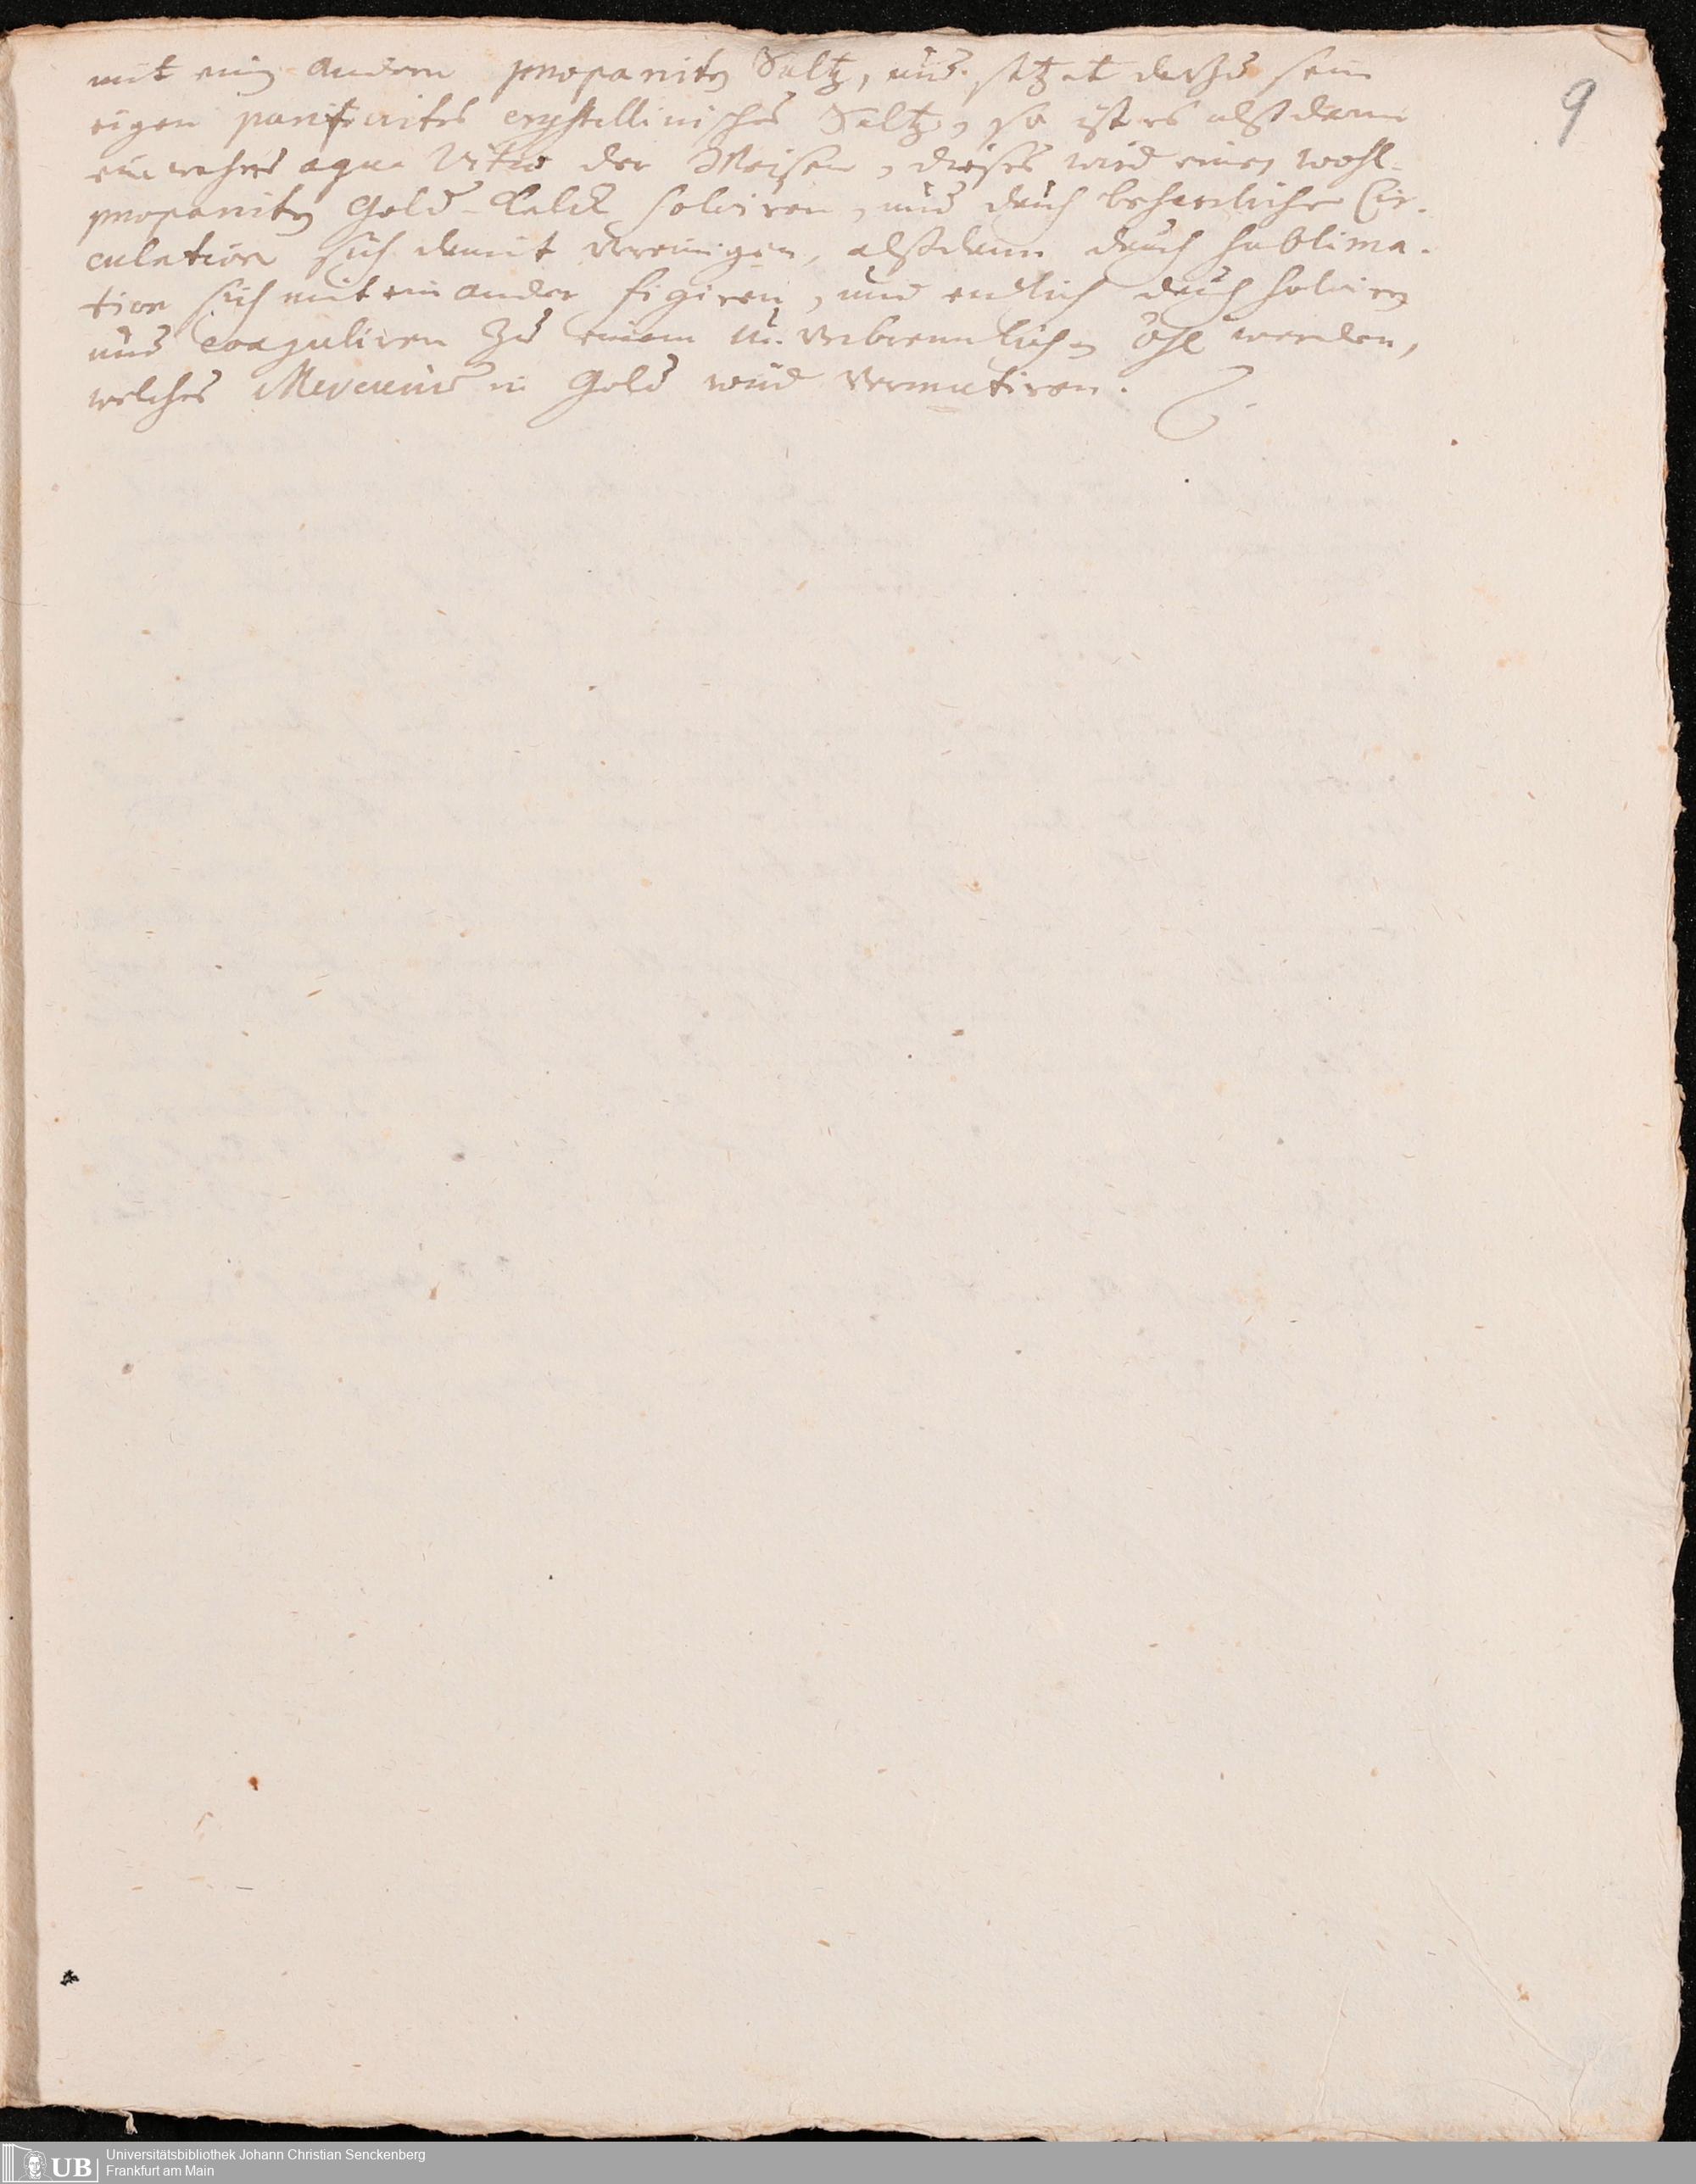 mit ein andern præparirtē Saltz, und setzet darzu sein
9
eigen purificirtes crystallinisches Saltz, so ist es alßdann
ein wahres aqua Vitæ der Weisen, dieses wird einen wohl-
præparirtē Gold-Kalck solviren, und durch beharrliche Cir-
culation sich damit vereinigen, alßdann durch sublima-
tion sich mit ein ander figiren, und endlich durch solvirē
und coaguliren zu einem unverbrennlichen Öhl werden,
welches Mercurium in Gold wird
Universitätsbibliothek Johann Christian Senckenberg
UB
Frankfurt am Main